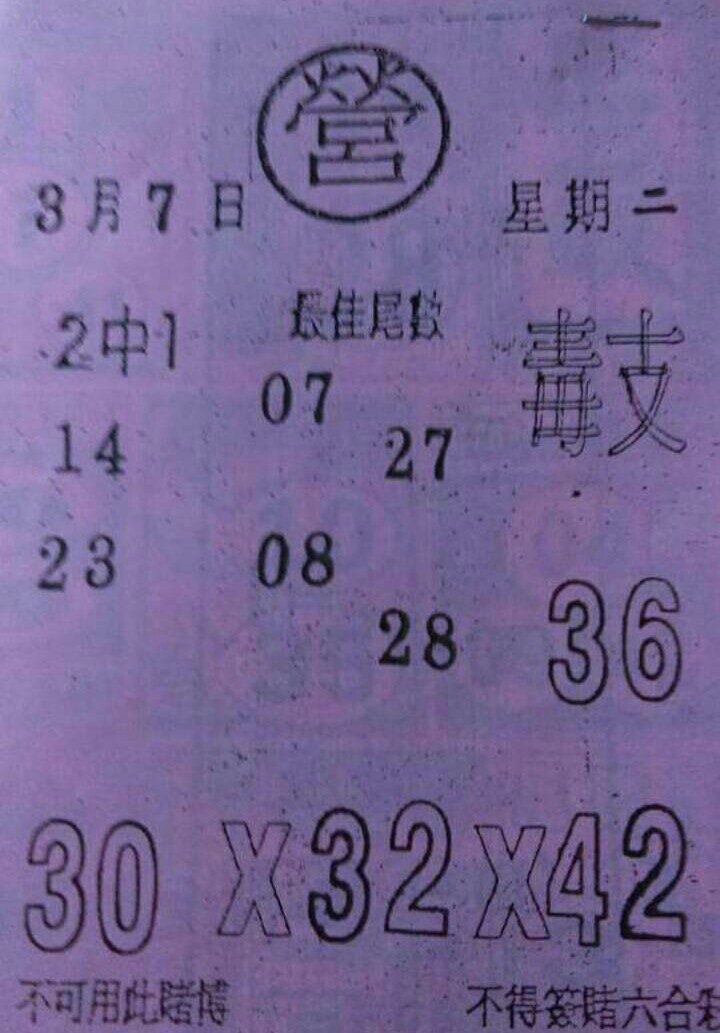 營
3月7日 星期二
2中1 最佳尾數 毒支
07
14 27
23 08
28 36
30 X 32 X 42
不可用此賭博 不得簽賭六合彩